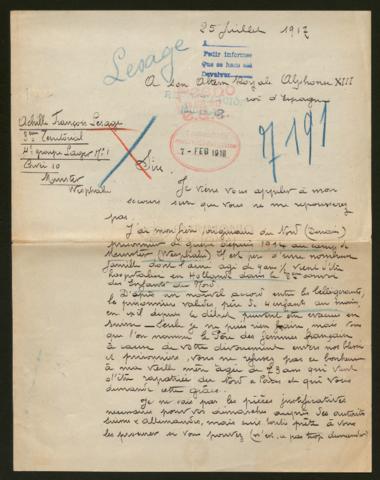 25 Juillet 1917
Lesage
A
Pedir informes
Que se haga asi
Devolver
A Son Altesse Royale Alphonse XIII
roi d'Espagne
Achille François Lesage
Territorial
4e groupe Lager No 1
Münster
Westphalie
7191
7-FEB 1918
Sire,
Je viens vous appeler à mon
secours sûr que vous ne me repousserez
pas.
J'ai mon frère, originaire du Nord (Denain)
prisonnier de guerre depuis 1914 au camp de
Munster (Westphalie). Il est père d'une nombreuse
famille dont l'aîné âgé de ans 1/2 vient d'être
hospitalisé en Hollande dans la 2e œuvre
des Enfants du Nord.
D'après un nouvel accord entre les belligérants,
les prisonniers valides père de 4 enfants au moins,
en exil depuis le début peuvent être évacués en
Suisse. Seule je ne puis rien faire, mais vous
que l'on nomme le Père des femmes françaises
à cause de votre dévouement envers nos blessés
et prisonniers, vous ne refuserez pas ce bonheur
à ma vieille mère âgée de 73 ans qui vient
d'être rapatriée du Nord à Paris et qui vous
demande cette grâce.
Je ne sais pas les pièces justificatives
nécessaires pour vos démarches auprès des autorités
suisses & allemandes, mais suis toute prête à vous
les procurer si vous pouvez (n'est-ce pas trop demander)